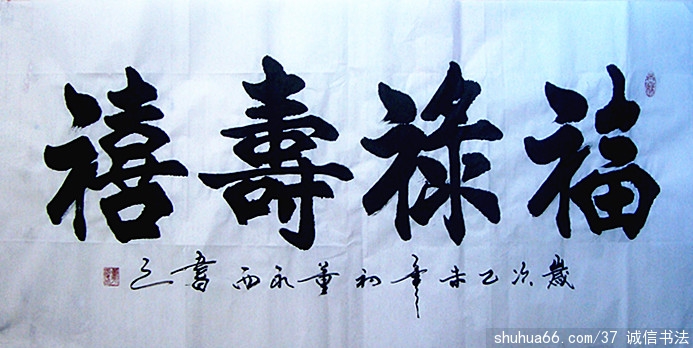 福祿壽禧
歲次乙未年初董永西書之
shuhua66.com/37 诚信书法